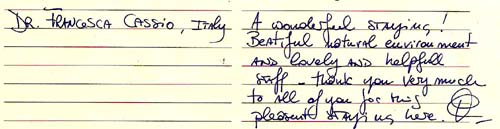 DR. FRANCESCA CASSIO, ITALY
A wonderful staying!
Beatiful natural environment
and lovely and helpfull
staff - thank you very much
to all of you for this
pleasent staying here.